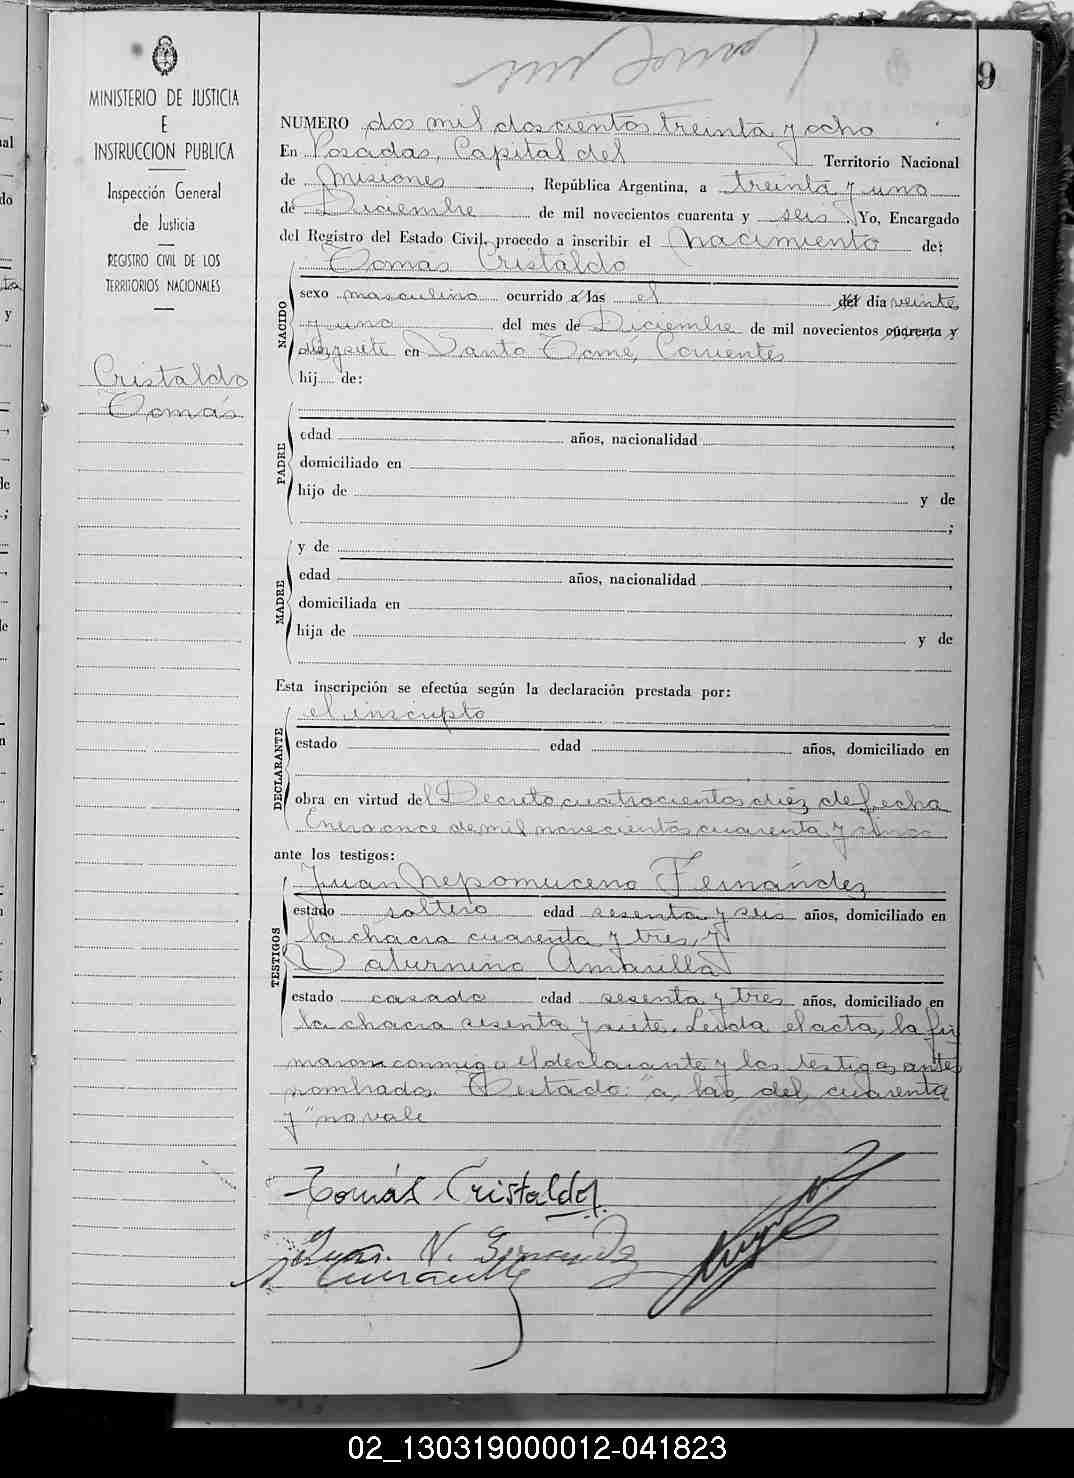 9
MINISTERIO DE JUSTICIA
E
INSTRUCCION PUBLICA
Inspección General
de Justicia
REGISTRO CIVIL DE LOS
TERRITORIOS NACIONALES
Cristaldo
Tomás
NUMERO dos mil doscientos treinta y ocho
En Posadas, Capital del Territorio Nacional
de Misiones, República Argentina, a treinta y uno
de Diciembre de mil novecientos cuarenta y seis. Yo, Encargado
del Registro del Estado Civil, procedo a inscribir el nacimiento de:
Tomás Cristaldo
NACIDO
sexo masculino ocurrido a las el del día veinte
y uno del mes de Diciembre de mil novecientos cuarenta y
diezsiete en Santo Tomé, Corrientes
hij de:
PADRE
edad años, nacionalidad ,
domiciliado en
hijo de y de
;
MADRE
y de
edad años, nacionalidad ,
domiciliada en
hija de y de
Esta inscripción se efectúa según la declaración prestada por:
DECLARANTE
el inscripto
estado edad años, domiciliado en
obra en virtud del Decreto cuatrocientos diez de fecha
Enero once de mil novecientos cuarenta y cinco
ante los testigos:
TESTIGOS
Juan Nepomuceno Fernández
estado soltero edad sesenta y seis años, domiciliado en
la chacra cuarenta y tres, y
Saturnino Amarilla
estado casado edad sesenta y tres años, domiciliado en
la chacra sesenta y siete. Leida el acta, la fir
maron conmigo el declarante y los testigos antes
nombrados. Testado: "a las, del, cuarenta
y" no vale
Tomás Cristaldo
Juan N. Fernandez
02_130319000012-041823